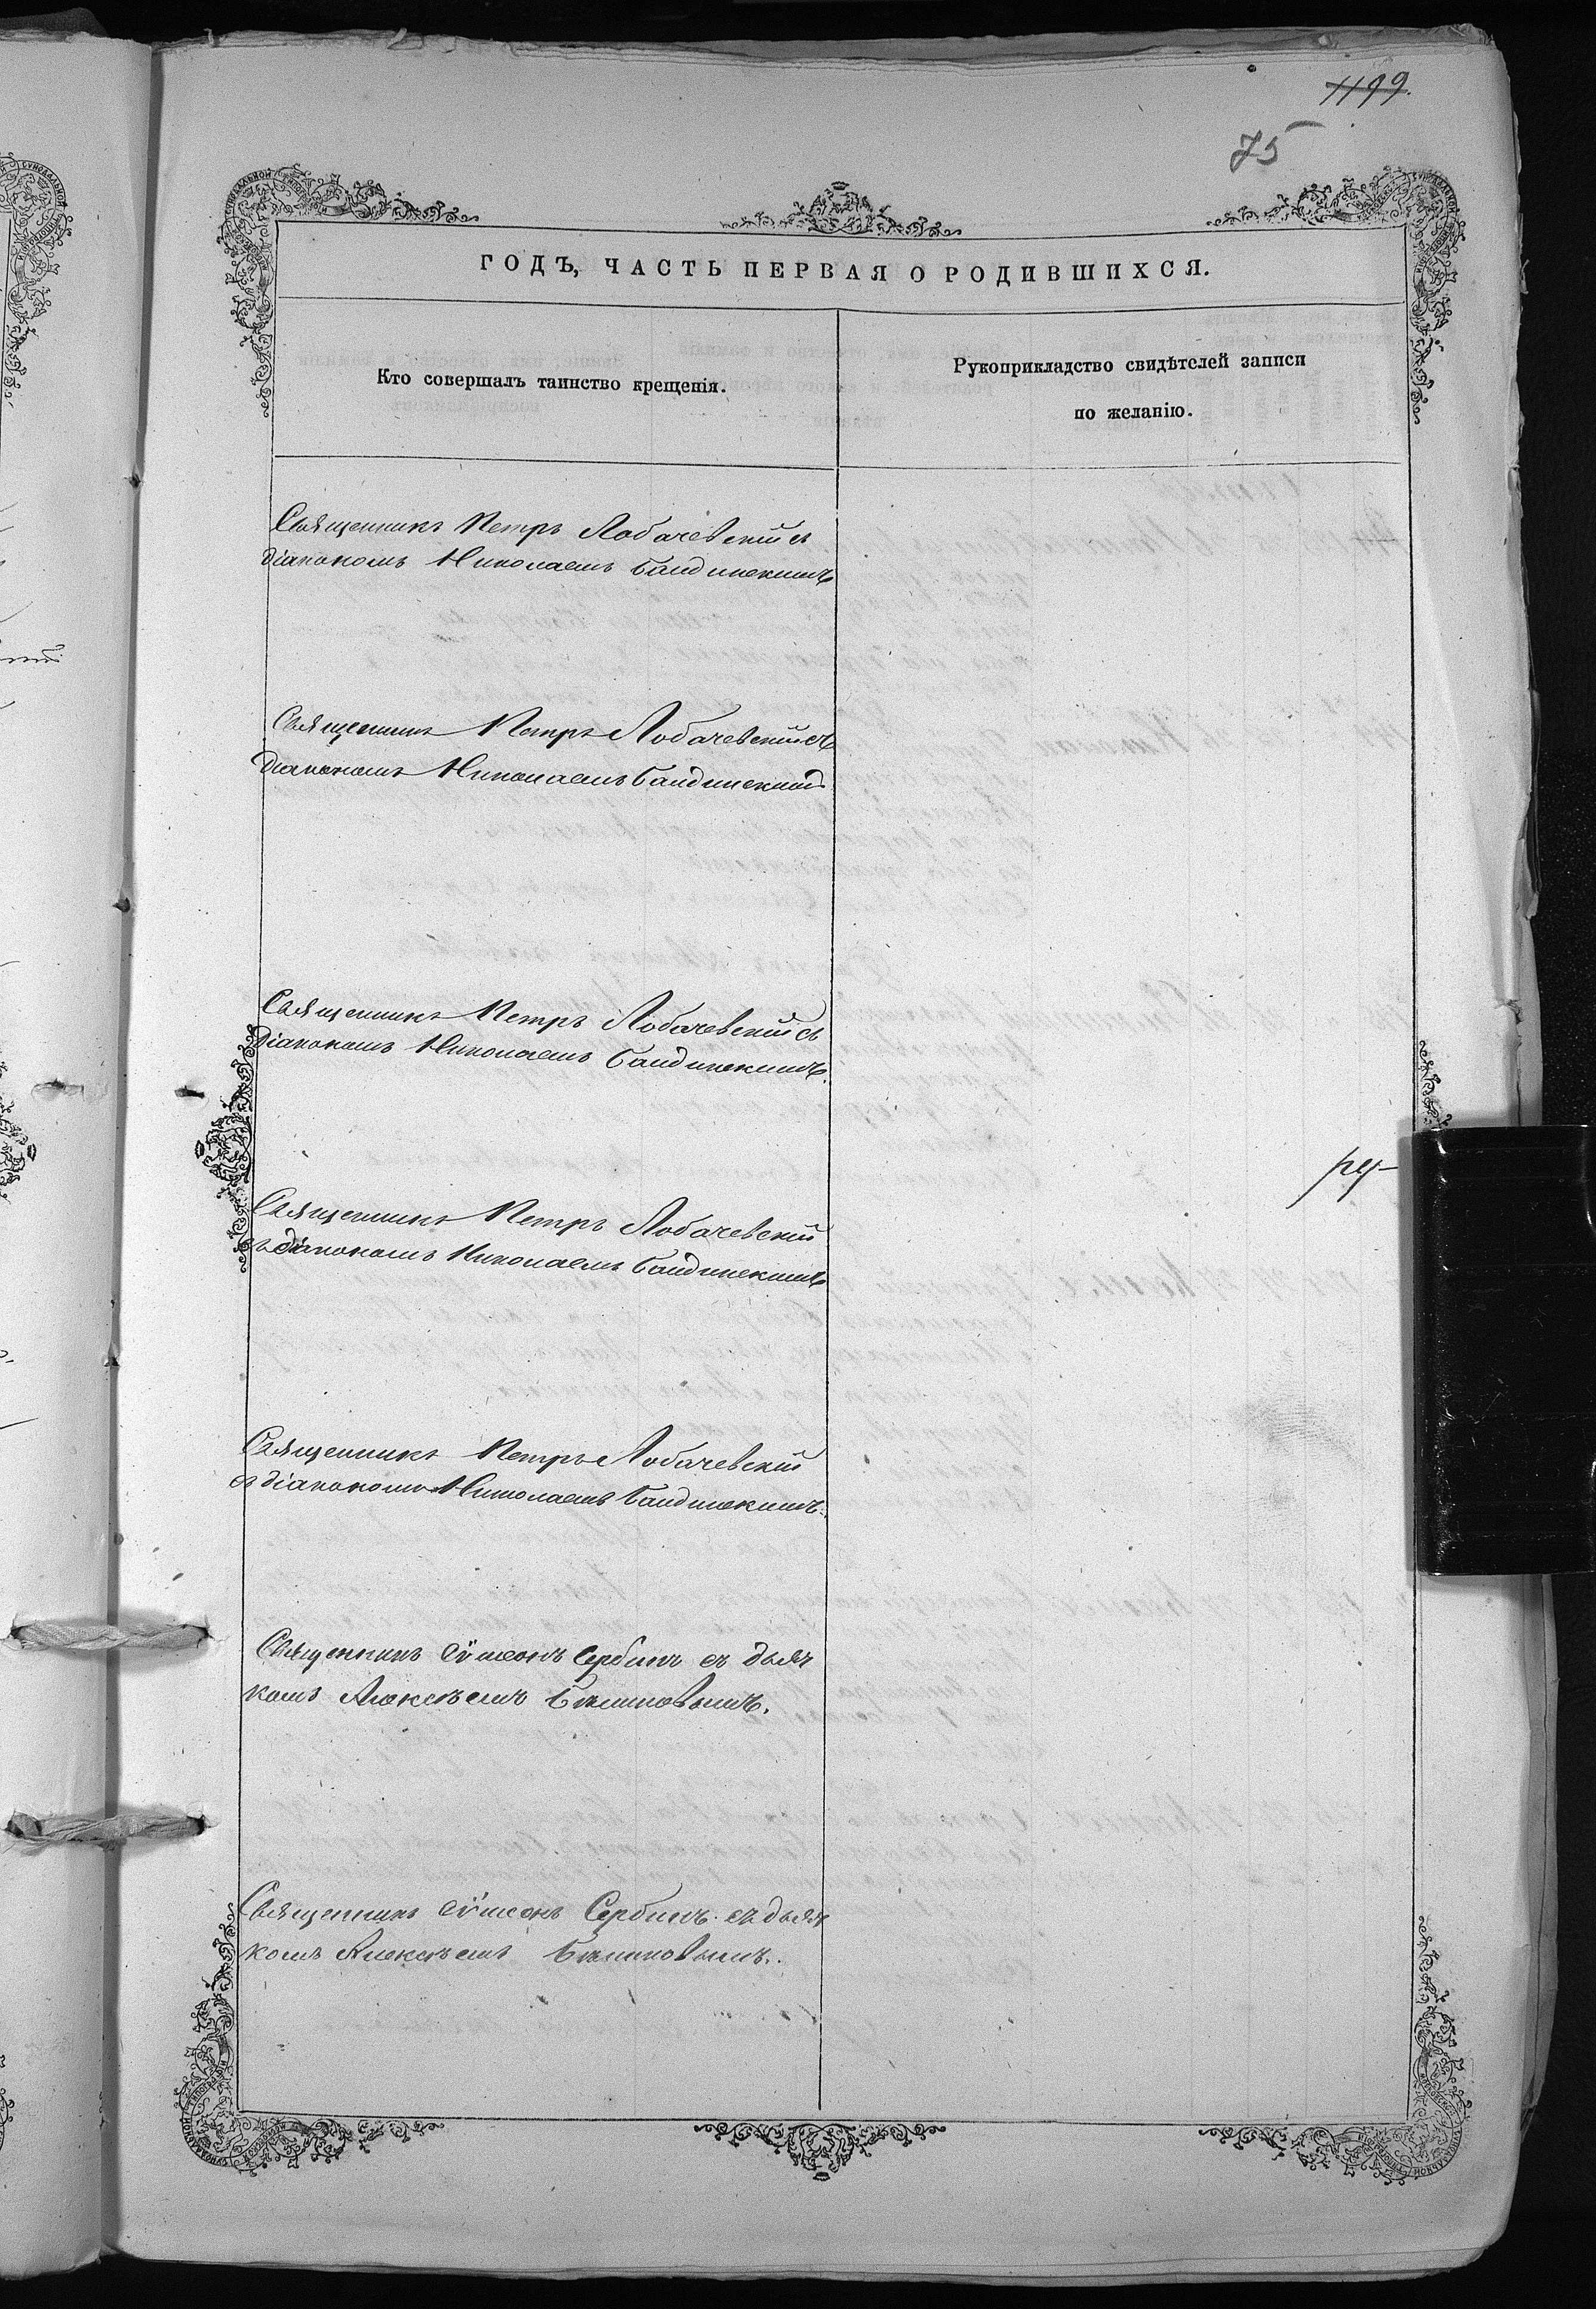 1199.
75
ГОДЪ, ЧАСТЬ ПЕРВАЯ О РОДИВШИХСЯ.
Кто совершалъ таинство крещенія.
Рукоприкладство свидѣтелей записи
по желанію.
Священникъ Петръ Лобачевскій съ
діакономъ Николаемъ Бандинскимъ
Священникъ Петръ Лобачевскій съ
діакономъ Николаемъ Бандинскимъ
Священникъ Петръ Лобачевскій съ
діакономъ Николаемъ Бандинскимъ.
ру-
Священникъ Петръ Лобачевскій
съ діакономъ Николаемъ Бандинскимъ
Священникъ Петръ Лобачевскій
съ діакономъ Николаемъ Бандинскимъ.
Священникъ Сѵмеонъ Сербинъ съ дьяч
комъ Алексѣемъ
Священникъ Сѵмеонъ Сербинъ съ дьяч
комъ Алексѣемъ